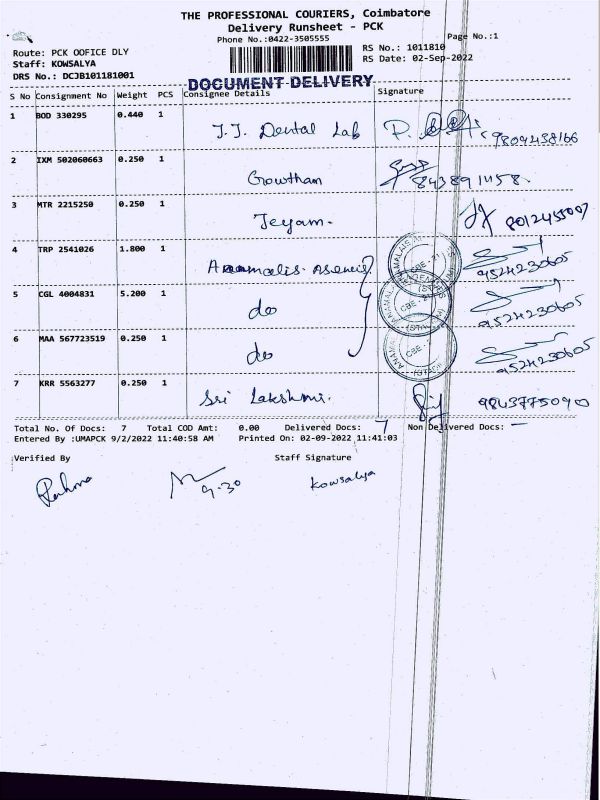 THE PROFESSIONAL COURIERS, Coimbatore
Delivery Runsheet - PCK
Phone No.:0422-3505555
Page No.:1
Route: PCK OOFICE DLY
Staff: KOWSALYA
DRS No.: DCJB101181001
RS No.: 1011810
RS Date: 02-Sep-2022
DOCUMENT DELIVERY
S No Consignment No Weight PCS Consignee Details Signature
1 BOD 330295 0.440 1 J.J. Dental Lab P. 9894238166
2 IXM 502060663 0.250 1 Gowtham 843891458.
3 MTR 2215250 0.250 1 Jeyam. 8012455097
4 TRP 2541026 1.800 1 9524230605
5 CGL 4004831 5.200 1 do 9524230605
6 MAA 567723519 0.250 1 do 9524230605
7 KRR 5563277 0.250 1 Sri Lakshmi. 9843775090
Total No. Of Docs: 7 Total COD Amt: 0.00 Delivered Docs: 7 Non Delivered Docs: —
Entered By :UMAPCK 9/2/2022 11:40:58 AM Printed On: 02-09-2022 11:41:03
Verified By Staff Signature
9.30 Kowsalya